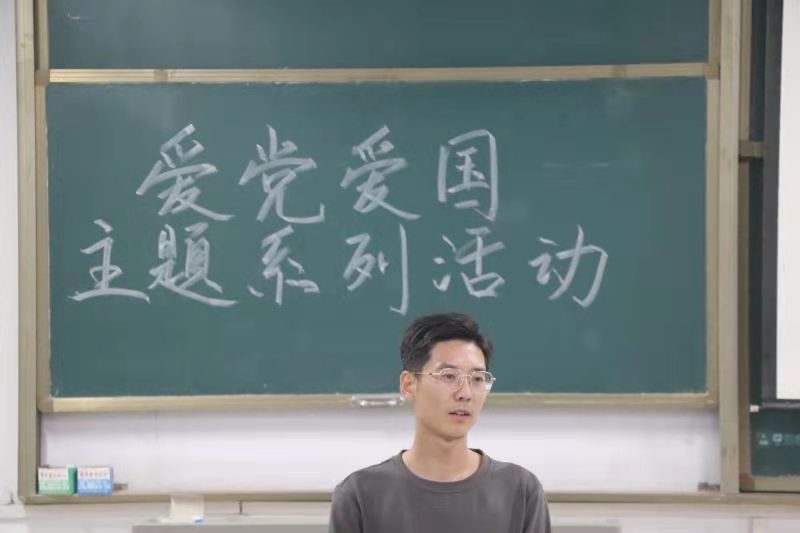 爱党爱国
主题系列活动